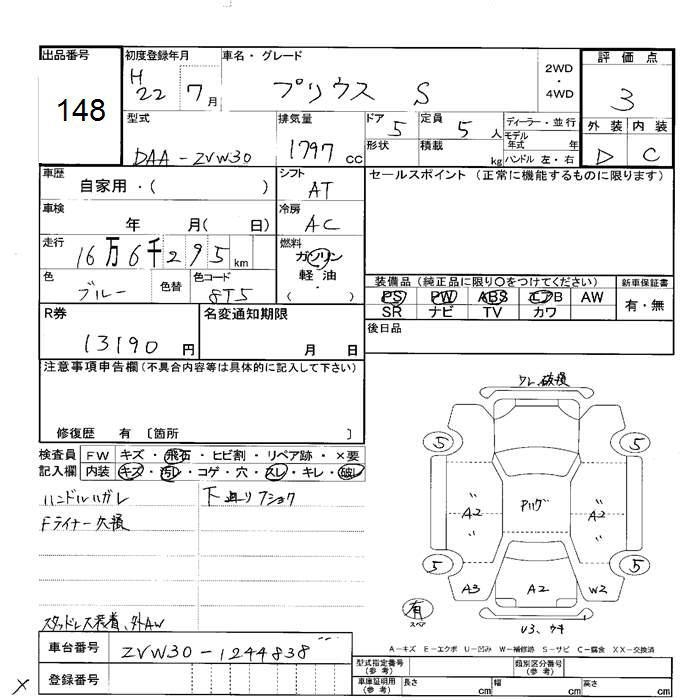 出品番号
148
初度登録年月
H
22 7月
車名・グレード
プリウス S
2WD
・
4WD
評価点
3
外装 内装
D C
型式
DAA-ZVW30
排気量
1797 CC
ドア 5
定員 5 人
形状
積載 kg
ディーラー・並行
モデル
年式 年
ハンドル 左・右
車歴
自家用・( )
シフト
AT
セールスポイント (正常に機能するものに限ります)
車検
年 月( 日)
冷房
AC
走行
16万6千295 km
燃料
ガソリン
軽・油
( )
色
ブルー
色替
色コード
8T5
装備品 (純正品に限り○をつけてください)
新車保証書
PS PW ABS エアB AW
SR ナビ TV カワ
有・無
後日品
R券
13190 円
名変通知期限
月 日
注意事項申告欄(不具合内容等は具体的に記入して下さい)
修復歴 有 〔箇所 〕
検査員
記入欄
FW キズ・飛石・ヒビ割・リペア跡・×要
内装 キズ・汚レ・コゲ・穴・スレ・キレ・破レ
ハンドルハガレ
Fライナー欠損
下廻りフショク
スタッドレス装着、外AW
ワレ破損
5 5
〃 〃
A2 A2
〃 〃
5 5
A3 A2 W2
有
スペア
U3、ウキ
A－キズ E－エクボ U－凹み W－補修跡 S－サビ C－腐食 XX－交換済
車台番号
ZVW30-1244838
登録番号
型式指定番号
(参考)
類別区分番号
(参考)
車庫証明用
(参考)
長さ cm
幅 cm
高さ cm
×